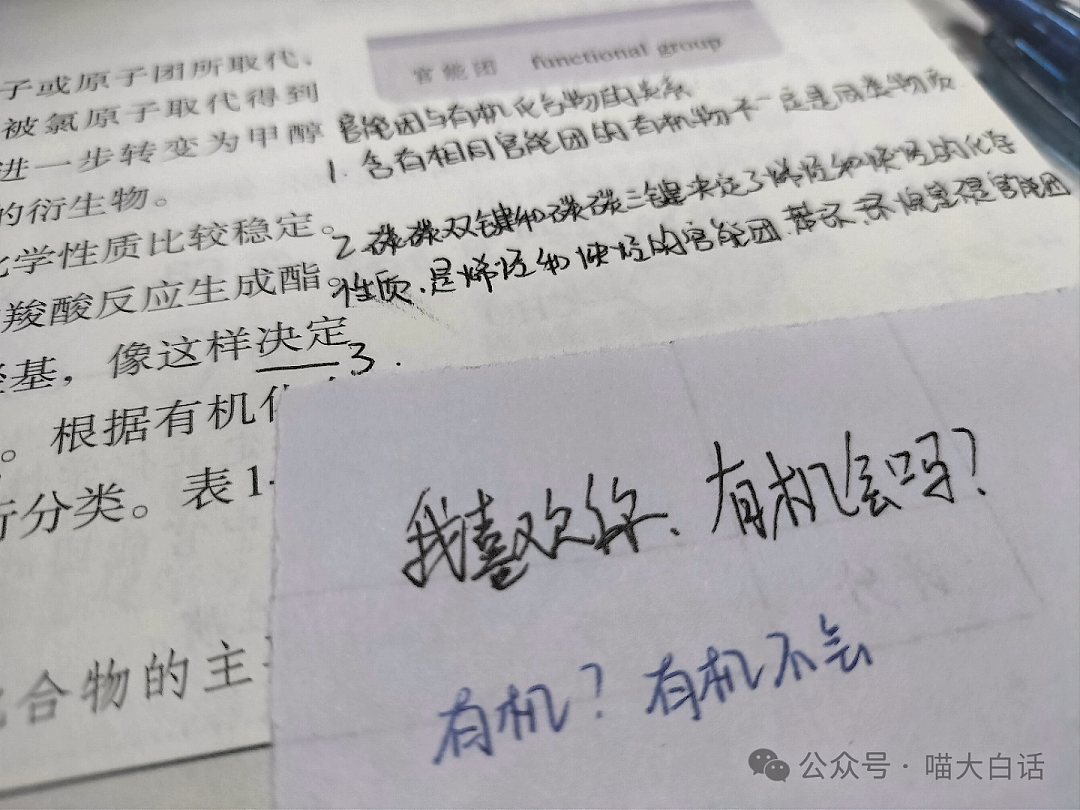 子或原子团所取代、
被氯原子取代得到
进一步转变为甲醇
的衍生物。
化学性质比较稳定。
羧酸反应生成酯。
羟基，像这样决定
。根据有机化
行分类。表1-
化合物的主
官能团 functional group
官能团与有机化合物的关系
1. 含有相同官能团的有机物不一定是同类物质
2. 碳碳双键和碳碳三键决定了烯烃和炔烃的化学
性质.是烯烃和炔烃的官能团.苯环、是官能团
3.
我喜欢你、有机会吗？
有机？有机不会
公众号·喵大白话